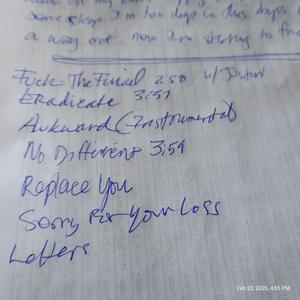 some sleep. I'm too deep in this
a way out, now I'm starting to
Fuck-The Finial 2:50 w/ Justin
Eradicate 3:57
Awkward (Instrumental)
No Different 3:59
Replace You
Sorry For Your Loss
Letters
Feb 23, 2026, 4:55 PM